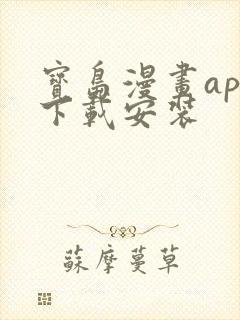 寶島漫畫ap
下載安装
蘇摩蔓草